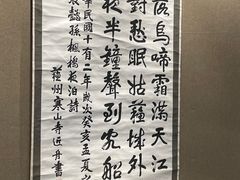 落烏啼霜滿天江
對愁眠姑蘇城外
夜半鐘聲到客船
華民國十有二年歲次癸亥孟夏
張懿孫楓橋夜泊詩
蘓州寒山寺近舟書